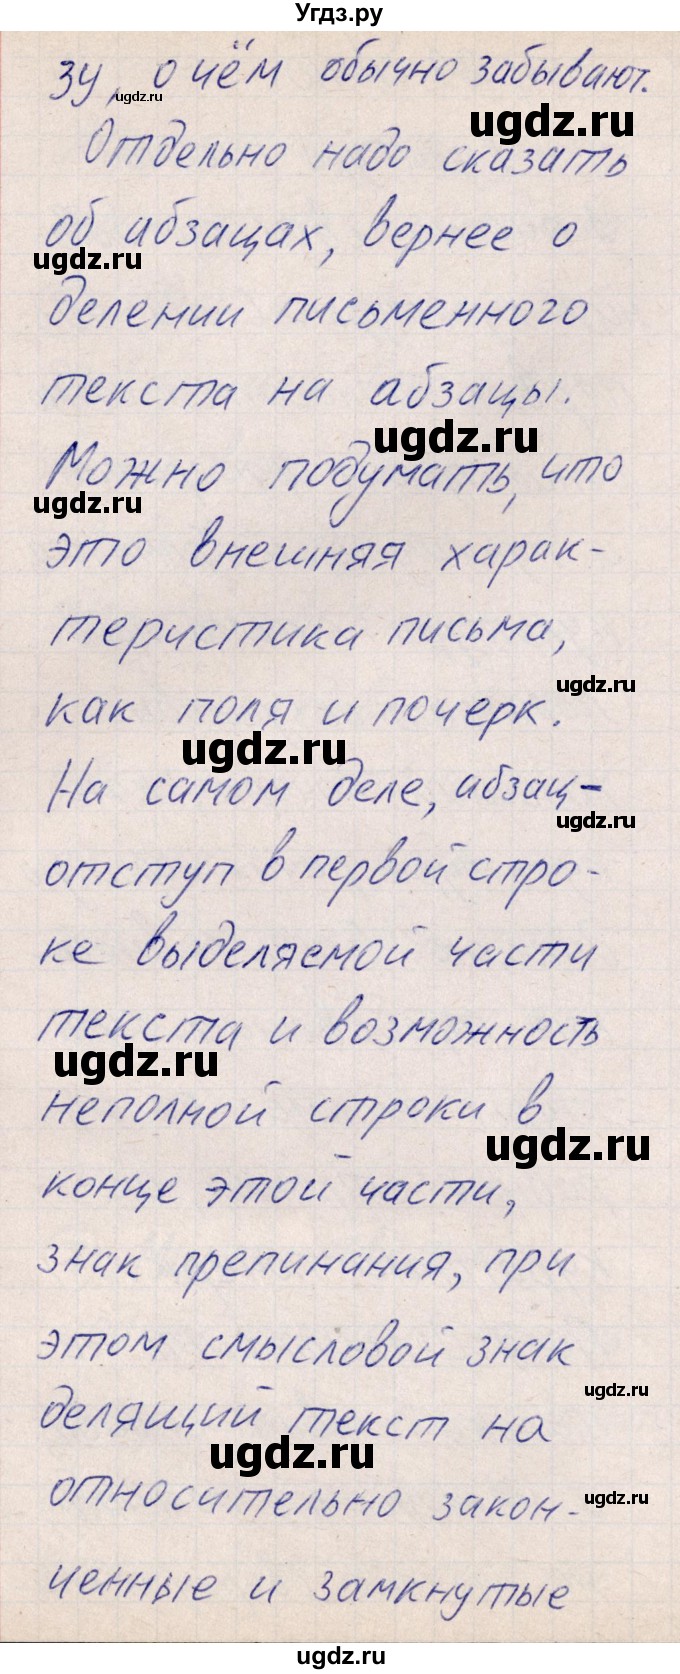 Угдз.ру
зу, о чём обычно забывают.
ugdz.ru
ugdz.ru
Отдельно надо сказать
об абзацах, вернее о
ugdz.ru
делении письменного
текста на абзацы.
ugdz.ru
Можно подумать, что
ugdz.ru
это внешняя харак-
теристика письма,
ugdz.ru
как поля и почерк.
ugdz.ru
На самом деле, абзац-
ugdz.ru
отступ в первой стро-
ке выделяемой части
текста и возможность
ugdz.ru
неполной строки в
ugdz.ru
конце этой части,
знак препинания, при
этом смысловой знак
ugdz.ru
делящий текст на
ugdz.ru
относительно закон-
ugdz.ru
ченные и замкнутые
ugdz.ru